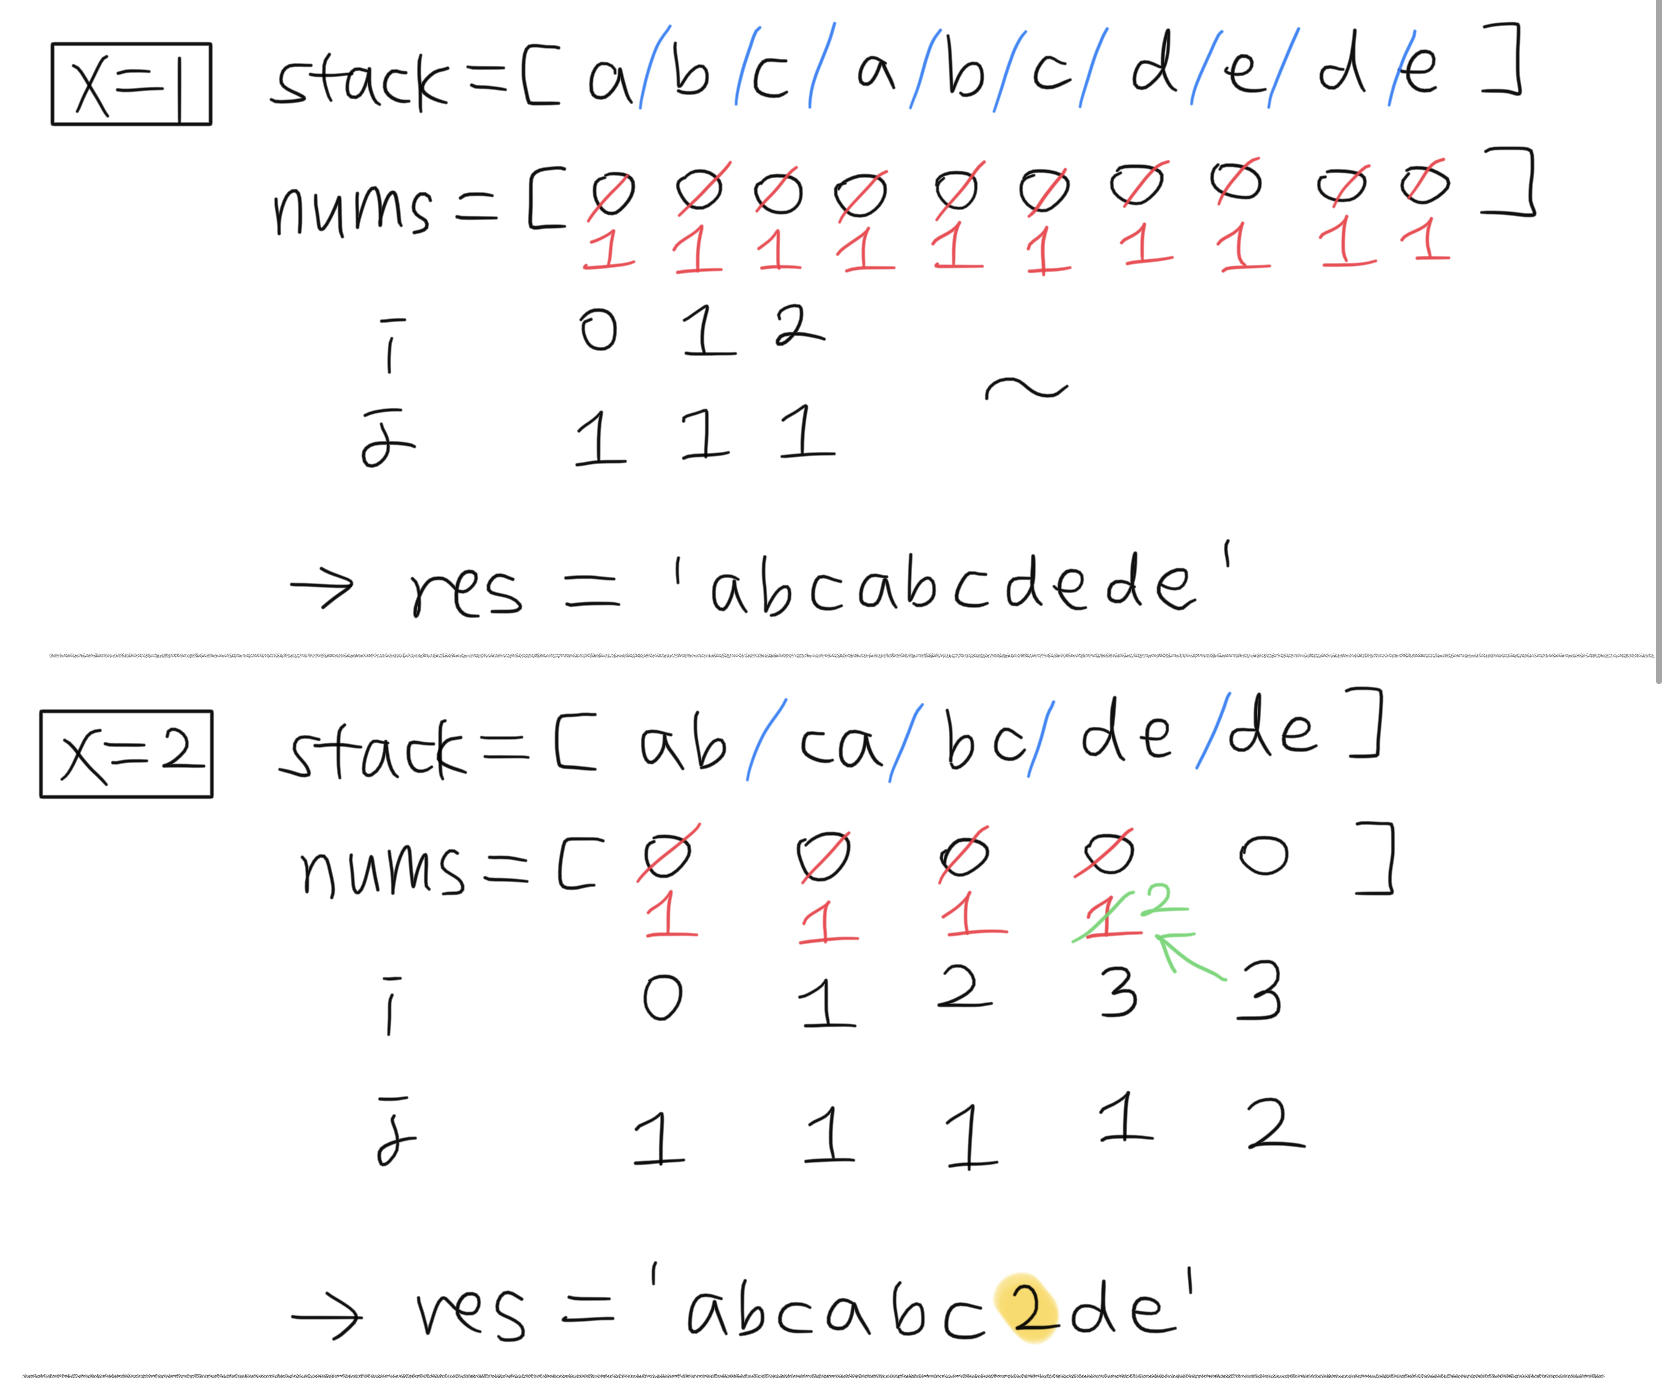 X=1 stack=[ a/b/c/a/b/c/d/e/d/e ]
nums=[ 0 0 0 0 0 0 0 0 0 0 ]
1 1 1 1 1 1 1 1 1 1
i 0 1 2
~
j 1 1 1
→ res = 'abcabcdede'
X=2 stack=[ ab/ca/bc/de/de ]
nums=[ 0 0 0 0 0 ]
1 1 1 1 2
i 0 1 2 3 3
j 1 1 1 1 2
→ res = 'abcabc2de'